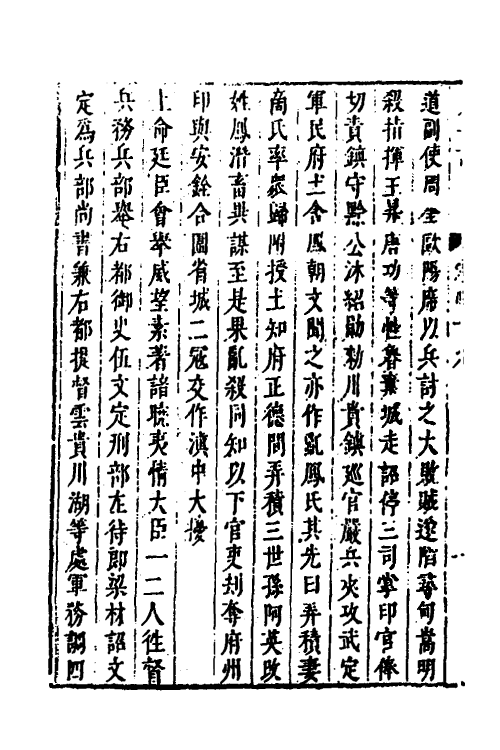 道副使周奎歐陽席以兵討之大敗賊遂陷尋甸嵩明
殺指揮王昇唐功等性魯棄城走詔停三司掌印官俸
切責鎮守黔公沐紹勛勑川貴鎮巡官嚴兵夾攻武定
軍民府土舍鳳朝文聞之亦作亂鳳氏其先曰弄積妻
商氏率眾歸附授土知府正德間弄積三世孫阿英改
姓鳳潛畜異謀至是果亂殺同知以下官吏刦奪府州
印與安銓合圍省城二冦交作滇中大擾
上命廷臣會舉威望素著諳曉夷情大臣一二人徃督
兵務兵部舉右都御史伍文定刑部左侍郎梁材詔文
定為兵部尚書兼右都提督雲貴川湖等處軍務調四